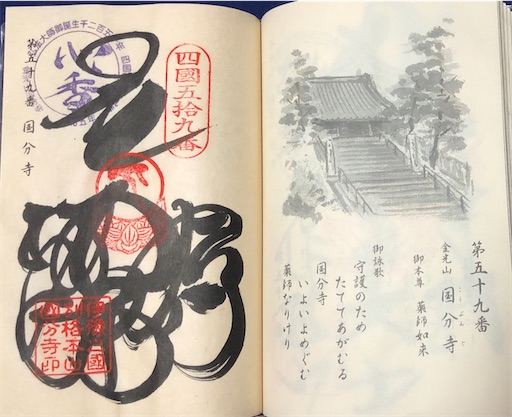 第五十九番
金光山 国分寺
御本尊 薬師如来
御詠歌
守護のため
たててあがむる
国分寺
いよいよめぐむ
薬師なりけり
四國五拾九番
第五十九番 国分寺
別格本山
國分寺印